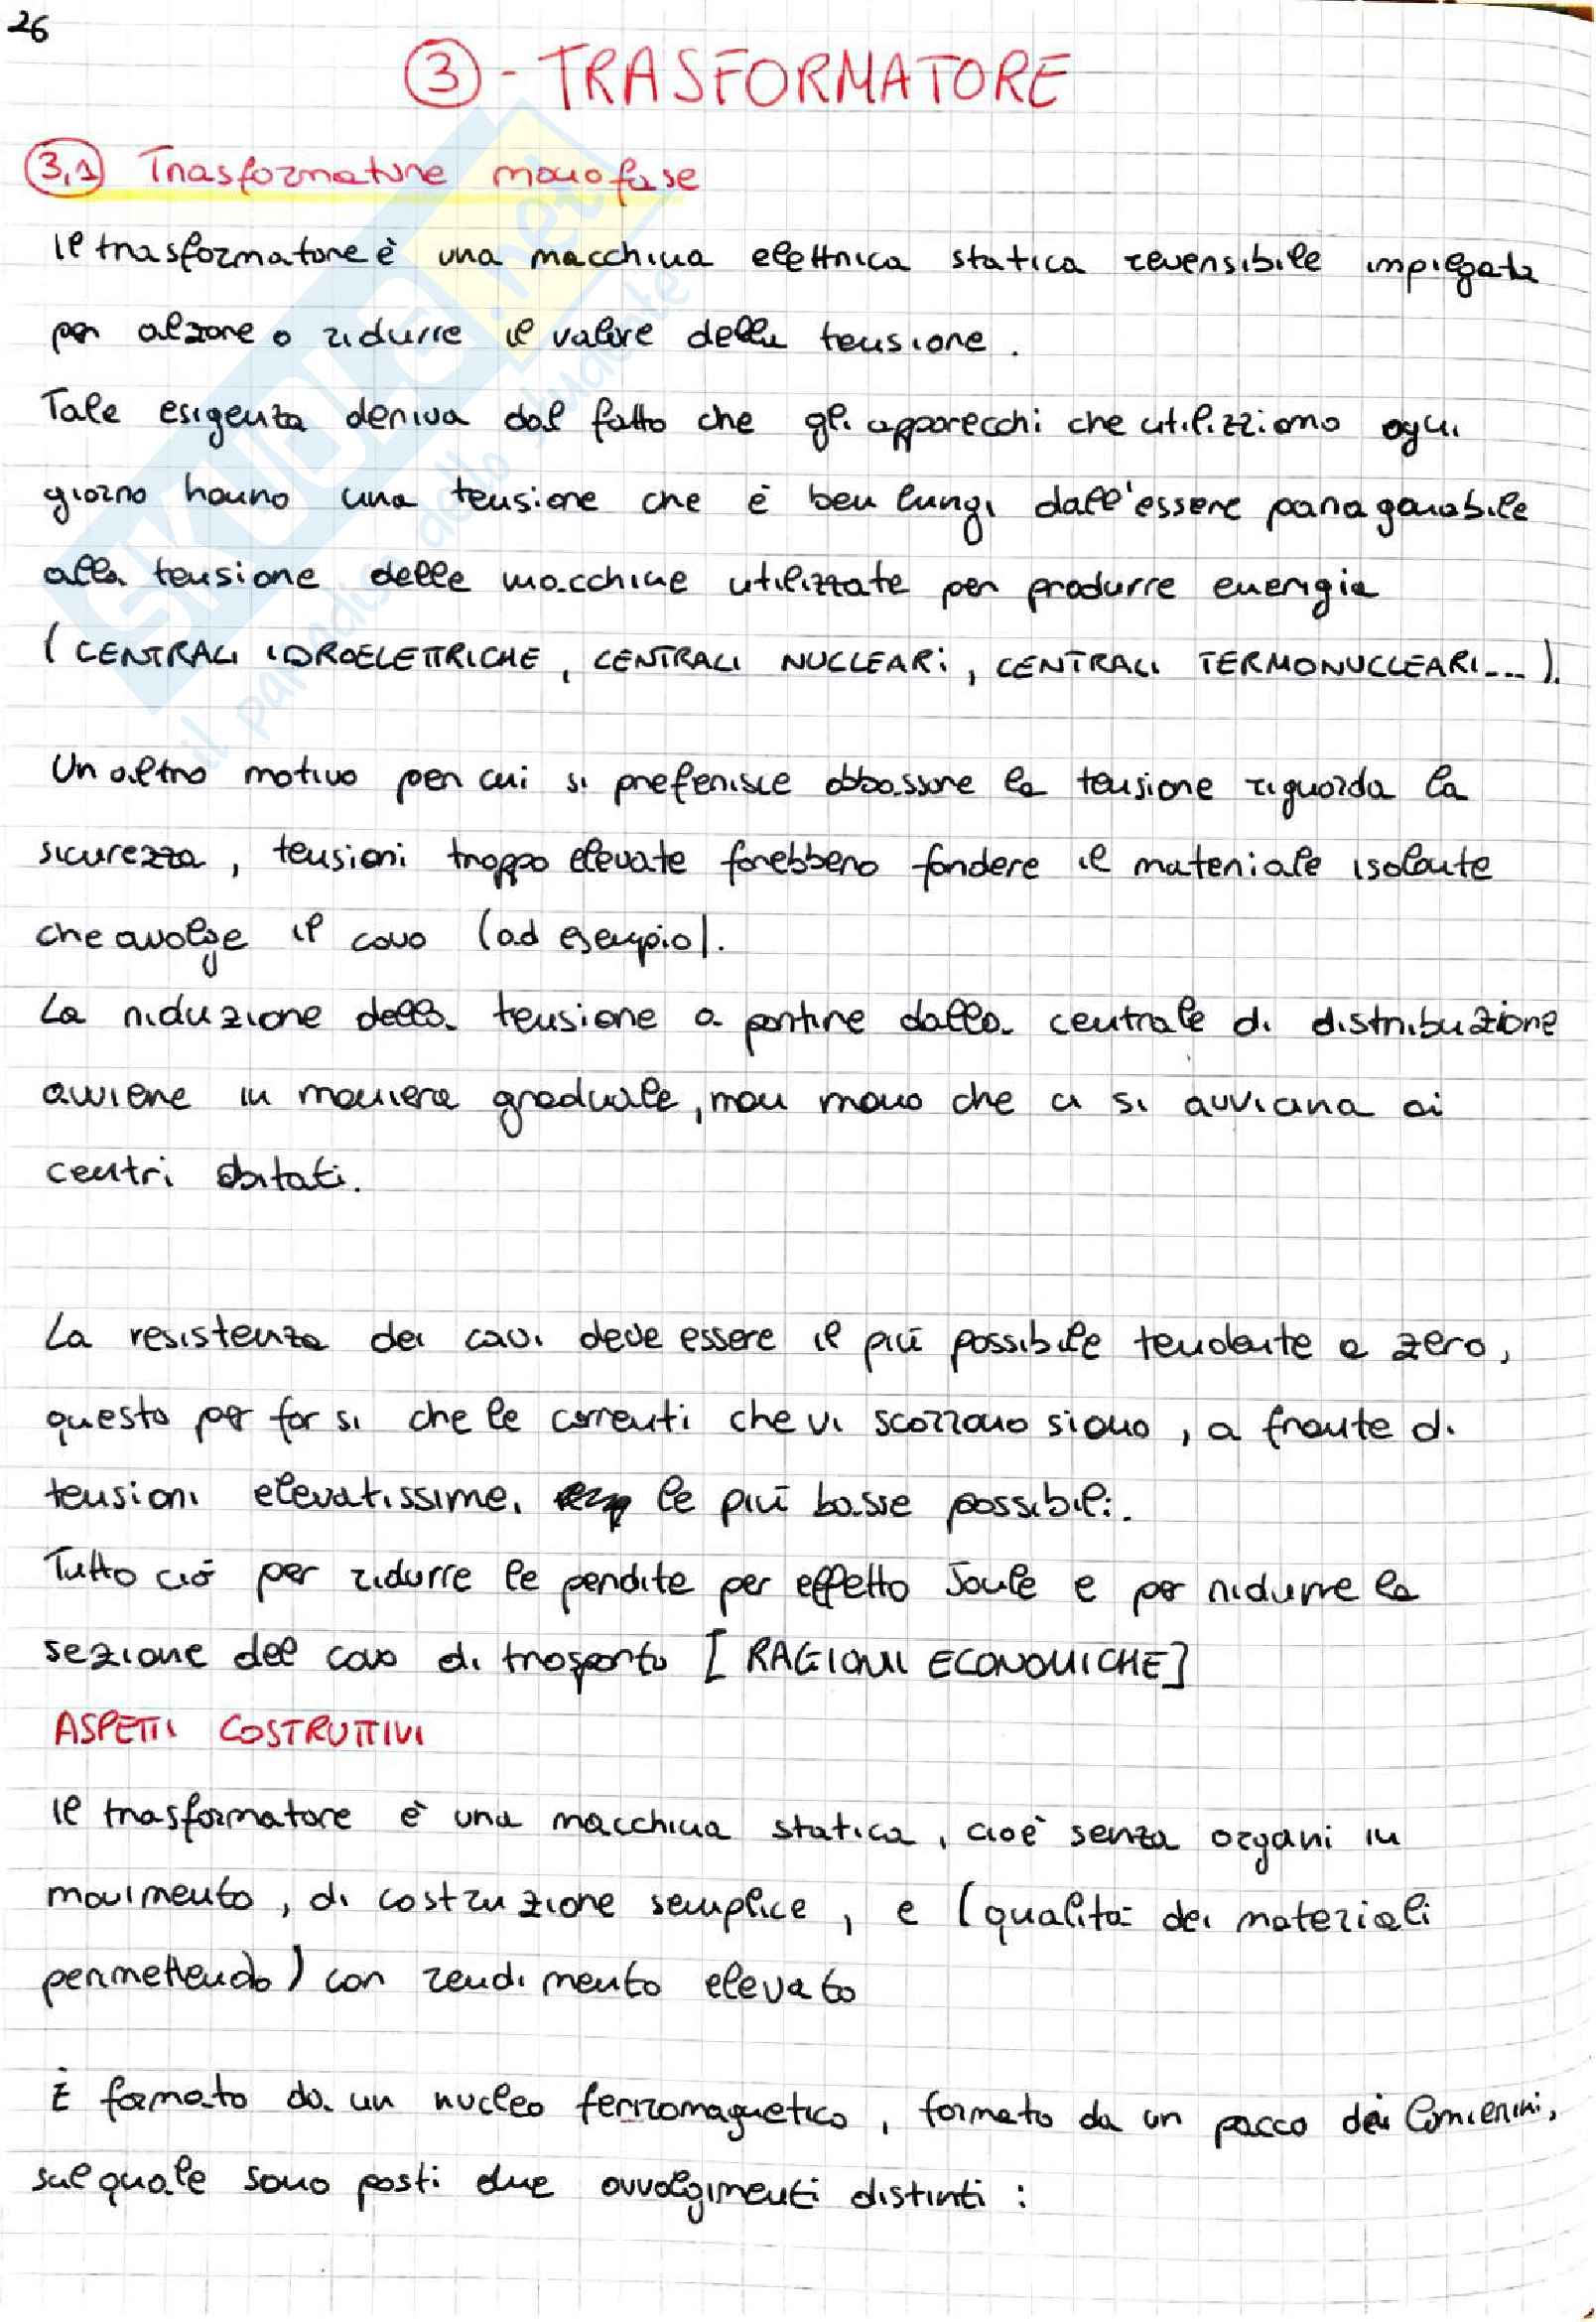 26
3 - TRASFORMATORE
3.1 Trasformatore monofase
Il trasformatore è una macchina elettrica statica reversibile impiegata
per alzare o ridurre il valore della tensione.
Tale esigenza deriva dal fatto che gli apparecchi che utilizziamo ogni
giorno hanno una tensione che è ben lungi dall'essere paragonabile
alla tensione delle macchine utilizzate per produrre energia
(CENTRALI IDROELETTRICHE, CENTRALI NUCLEARI, CENTRALI TERMONUCLEARI...).
Un altro motivo per cui si preferisce abbassare la tensione riguarda la
sicurezza, tensioni troppo elevate farebbero fondere il materiale isolante
che avolge il cavo (ad esempio).
La riduzione della tensione a partire dalla centrale di distribuzione
avviene in maniera graduale, man mano che ci si avvicina ai
centri abitati.
La resistenza dei cavi deve essere il più possibile tendente a zero,
questo per far si che le correnti che vi scorrano siano, a fronte di
tensioni elevatissime, le più basse possibili.
Tutto ciò per ridurre le perdite per effetto Joule e per ridurre la
sezione del cavo di trasporto [RAGIONI ECONOMICHE]
ASPETTI COSTRUTTIVI
Il trasformatore è una macchina statica, cioè senza organi in
movimento, di costruzione semplice, e (qualità dei materiali
permettendo) con rendimento elevato
È formato da un nucleo ferromagnetico, formato da un pacco dei lamierini,
sul quale sono posti due avvolgimenti distinti :
SKUOLA.net
il paradiso dello studente